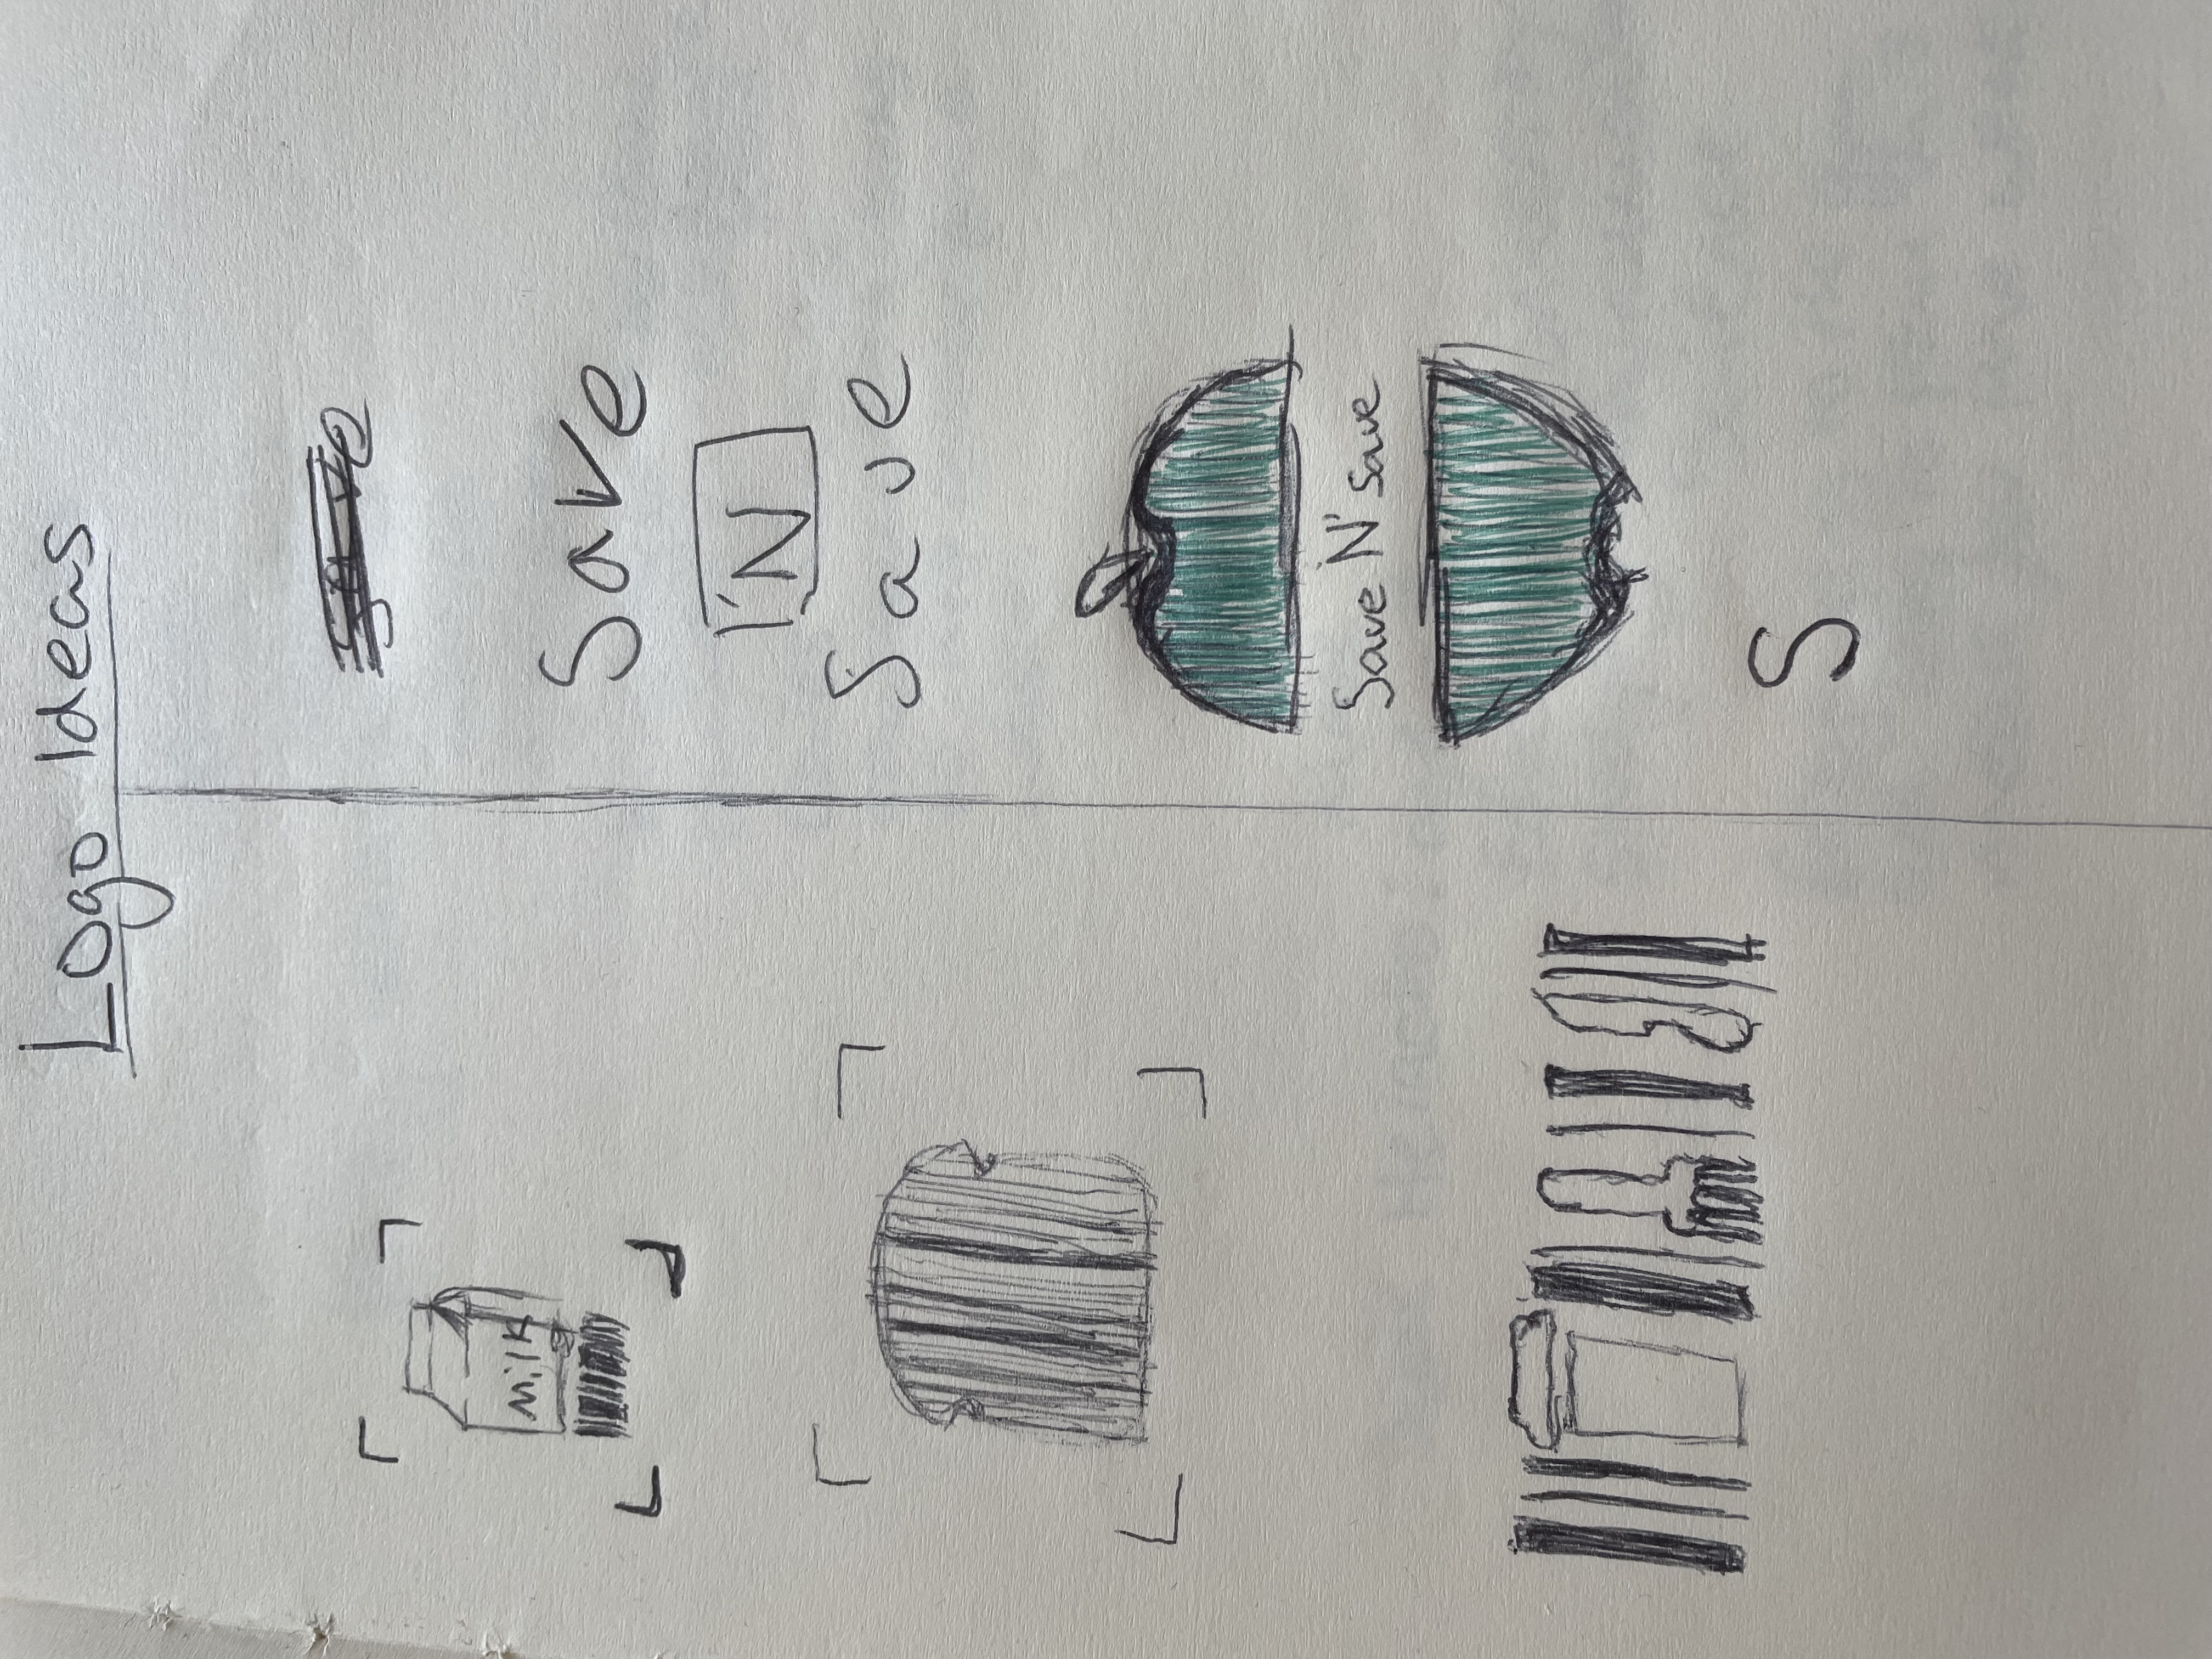 Logo Ideas
Milk
Save
Save
'N
Save
Save N' Save
S